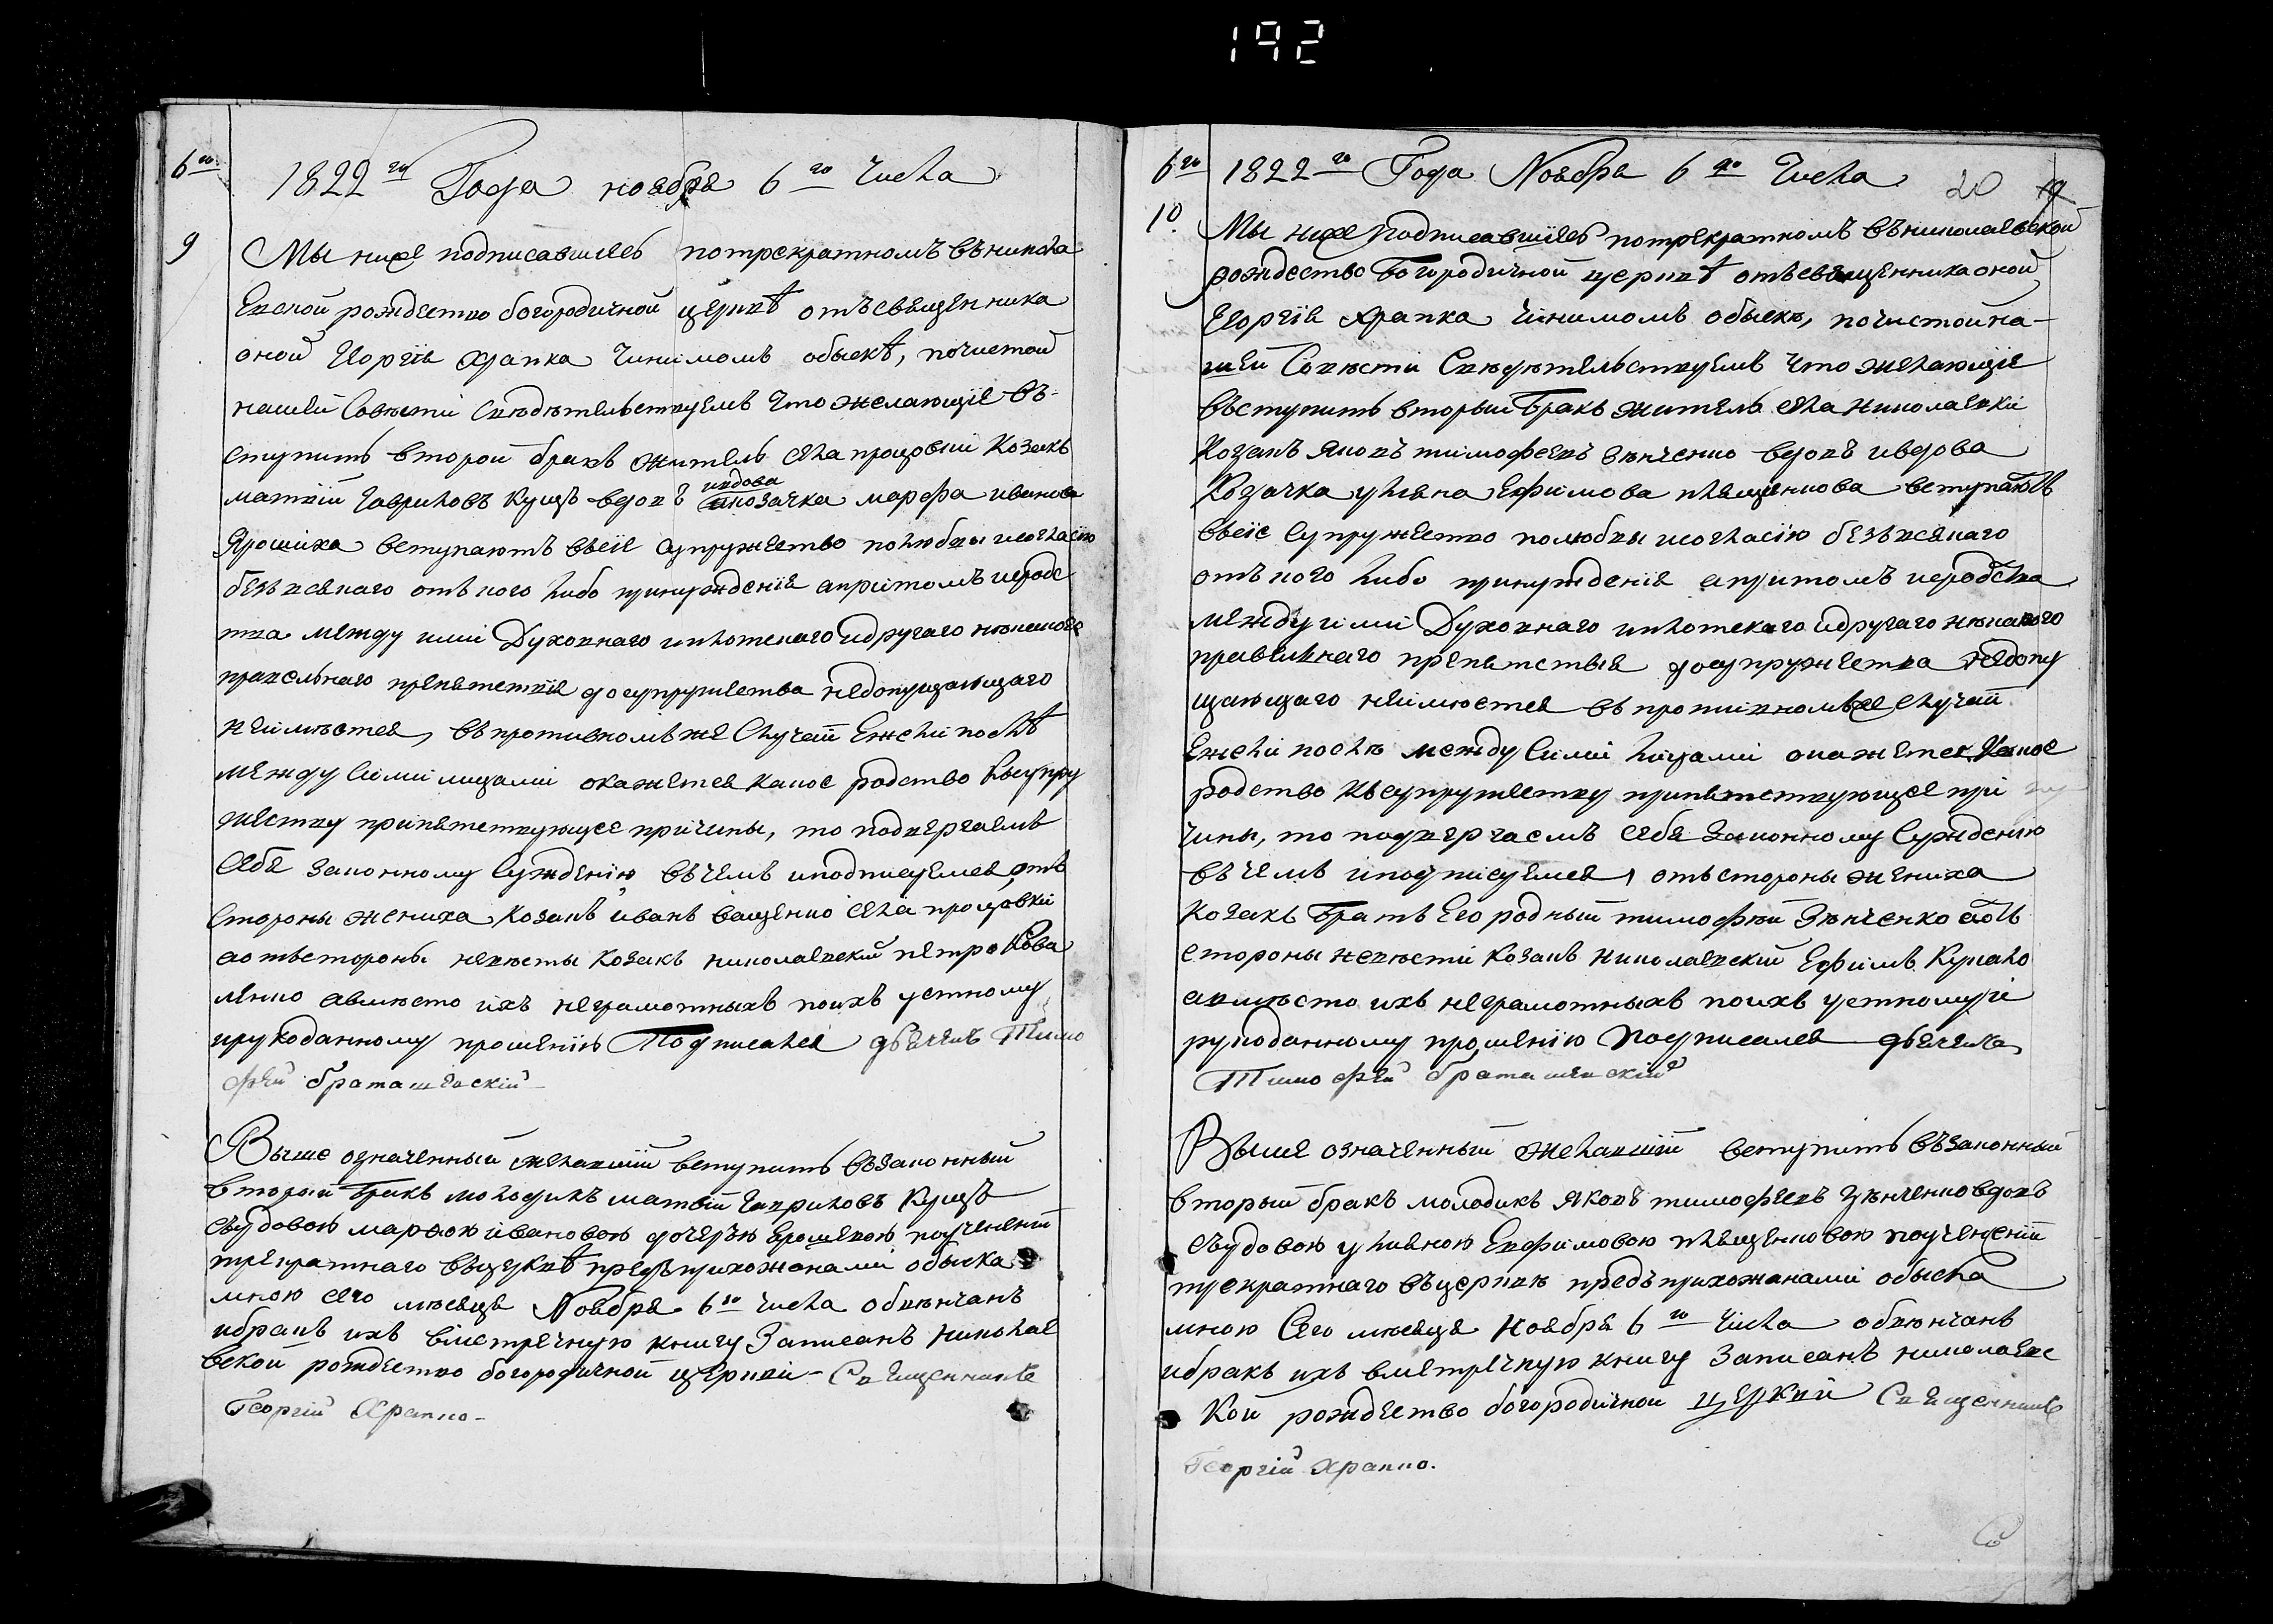 192
6го
1822го Года ноября 6го числа
9
Мы ниже подписавшиесь потрекратномъ въникола
Евской рождество богородичной церквѣ отъсвященника
оной Георгія Храпка чинимомъ обыскѣ, почистой
нашей Совѣсти Свѣдѣтельствуемъ что желающіе въ-
ступить второй бракъ житель села процовки Козакъ
матвій Гавриловъ Куцъ вдовъ
ивдова
козачка марфа иванова
Ярошиха вступаютъ въсіе супружество полюбви исогласію
безъвсякаго отъкого либо принужденія апритомъ иеродс
тва между ими Духовнаго иплотскаго идругаго нѣкакого
правельнаго препятствія досупружества недопущающаго
неимѣется, въпротивномъже Случаѣ Ежели послѣ
между Сими лицами окажется какое родство Ксупру
жеству припятствующее причины, то подвергаемъ
Себя законному Сужденію въчемъ иподписуемся отъ
Стороны жениха Козакъ иванъ Ващенко села процовки
аотъстороны невѣсты Козакъ николаевскій петро Кова
ленко авмѣсто ихъ неграмотныхъ поихъ устному
ирукоданному прошенію Подписался дьячекъ Тимо
фей браташевскій
Выше означенный желавшій вступить възаконный
вторый бракъ молодикъ матвій Гавриловъ Куцъ
съудовою марфою ивановою дочерю Ерошевою поучененіи
трекратнаго въцерквѣ предъприхожанами обыска
мною сего мѣсяца Ноября 6го числа обвѣнчанъ
ибракъ ихъ вметречную книгу Записанъ николае
вской рождество богородичной церкви - Священникъ
Георгій Храпко-
6го 1822го Года Ноября 6го Числа
20
10.
Мы ниже Подписавшіесь потрекратномъ въниколаевской
рождество Богородичной церквѣ отъсвященника оной
Георгія Храпка чинимомъ обыскѣ, почистойна-
шей Совѣсти Свѣдѣтельствуемъ что желающіе
въступить вторый Бракъ житель села николаевки
Козакъ Яковъ тимофеевъ Зѣнченко вдовъ ивдова
Козачка уляна Ефимова пляшенкова вступаютъ
въсіе супружество полюбви исогласію безъвсякаго
отъкого либо принужденія апритомъ иеродства
между ими Духовнаго иплотскаго идругаго нѣкакого
правельнаго препятствія досупружества недопу
щающаго неимѣется въпротивномъже случаѣ
Ежели послѣ между Сими лицами окажется Какое
родство Къ супружеству припятствующее при
чины, то подвергаемъ себя законному Сужденію
въчемъ иподписуемся, отъстороны жениха
Козакъ Братъ Его родный тимофѣй Зѣнченко аотъ
стороны невѣсти Козакъ николаевскій Ефимъ Купало
авмѣсто ихъ неграмотныхъ поихъ устномуи
рукоданному прошенію Подписался дьячекъ
Тимофей браташевскій
Выше означенный желавшій вступить възаконный
вторый бракъ молодикъ Яковъ тимофеевъ зѣнченко вдовъ
съудовою уляною Евфимовою пляшенковою поучененіи
трекратнаго въцерквѣ предъприхожанами обыска
мною Сего мѣсяця Ноября 6го Числа обвѣнчанъ
ибракъ ихъ вметречную книгу Записанъ николаевс
Кой рождество богородичной церкви Священникъ
Георгій Храпко.